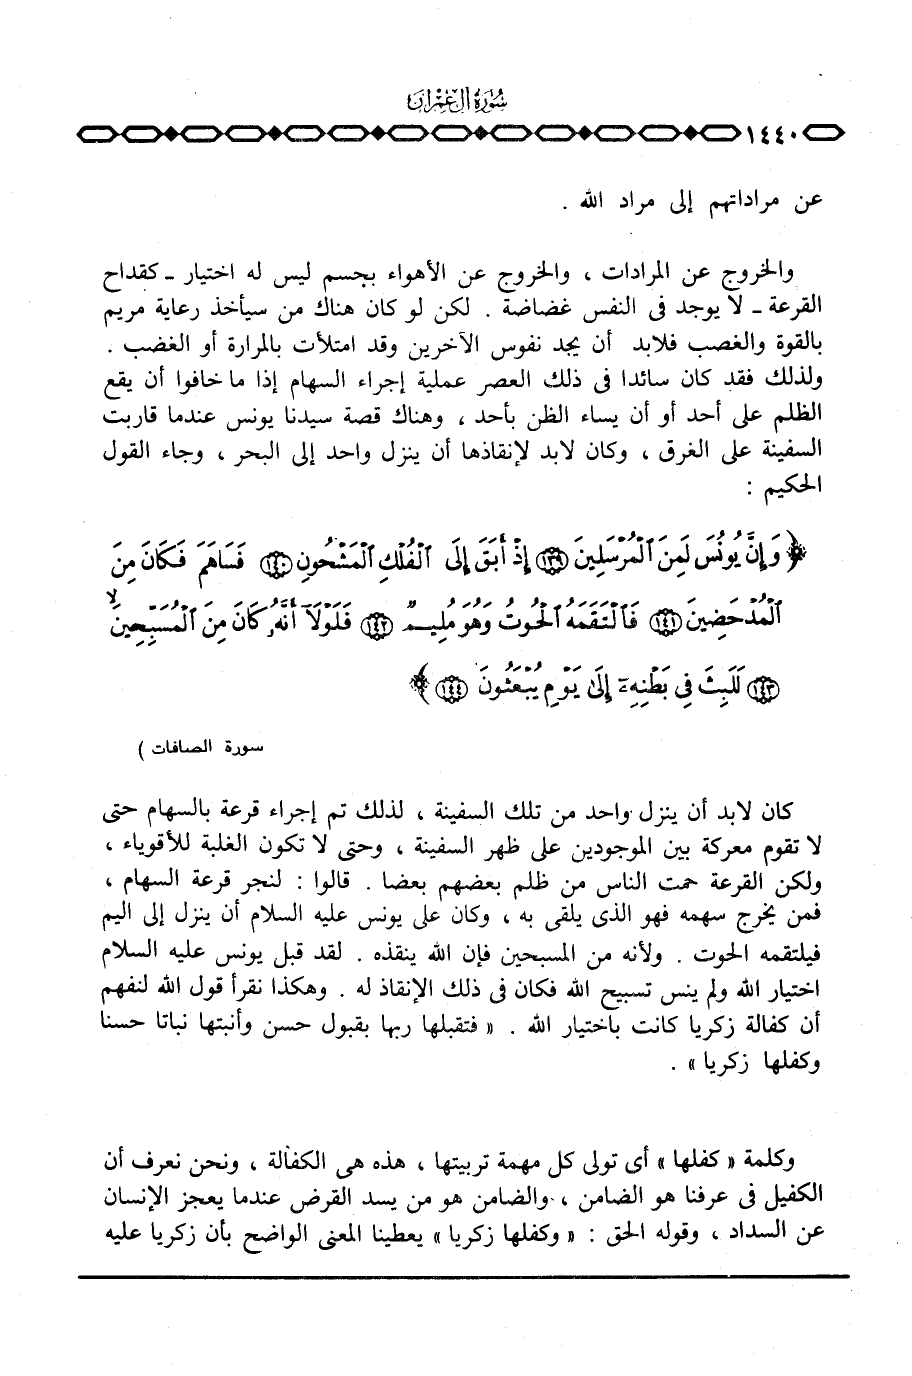 سُورَةُ آلِ عِمْرَان
١٤٤٠
عن مراداتهم إلى مراد الله .
والخروج عن المرادات ، والخروج عن الأهواء بجسم ليس له اختيار ـ كقداح
القرعة ـ لا يوجد فى النفس غضاضة . لكن لو كان هناك من سيأخذ رعاية مريم
بالقوة والغصب فلابد أن يجد نفوس الآخرين وقد امتلأت بالمرارة أو الغضب .
ولذلك فقد كان سائدا فى ذلك العصر عملية إجراء السهام إذا ما خافوا أن يقع
الظلم على أحد أو أن يساء الظن بأحد ، وهناك قصة سيدنا يونس عندما قاربت
السفينة على الغرق ، وكان لابد لإنقاذها أن ينزل واحد إلى البحر ، وجاء القول
الحكيم :
﴿ وَإِنَّ يُونُسَ لَمِنَ ٱلْمُرْسَلِينَ ١٣٩ إِذْ أَبَقَ إِلَى ٱلْفُلْكِ ٱلْمَشْحُونِ ١٤٠ فَسَاهَمَ فَكَانَ مِنَ
ٱلْمُدْحَضِينَ ١٤١ فَٱلْتَقَمَهُ ٱلْحُوتُ وَهُوَ مُلِيمٌ ١٤٢ فَلَوْلَآ أَنَّهُۥ كَانَ مِنَ ٱلْمُسَبِّحِينَ
١٤٣ لَلَبِثَ فِى بَطْنِهِۦٓ إِلَىٰ يَوْمِ يُبْعَثُونَ ١٤٤ ﴾
سورة الصافات )
كان لابد أن ينزل واحد من تلك السفينة ، لذلك تم إجراء قرعة بالسهام حتى
لا تقوم معركة بين الموجودين على ظهر السفينة ، وحتى لا تكون الغلبة للأقوياء ،
ولكن القرعة حمت الناس من ظلم بعضهم بعضا . قالوا : لنجر قرعة السهام ،
فمن يخرج سهمه فهو الذى يلقى به ، وكان على يونس عليه السلام أن ينزل إلى اليم
فيلتقمه الحوت . ولأنه من المسبحين فإن الله ينقذه . لقد قبل يونس عليه السلام
اختيار الله ولم ينس تسبيح الله فكان فى ذلك الإنقاذ له . وهكذا نقرأ قول الله لنفهم
أن كفالة زكريا كانت باختيار الله . « فتقبلها ربها بقبول حسن وأنبتها نباتا حسنا
وكفلها زكريا » .
وكلمة « كفلها » أى تولى كل مهمة تربيتها ، هذه هى الكفالة ، ونحن نعرف أن
الكفيل فى عرفنا هو الضامن ، والضامن هو من يسد القرض عندما يعجز الإنسان
عن السداد ، وقوله الحق : « وكفلها زكريا » يعطينا المعنى الواضح بأن زكريا عليه